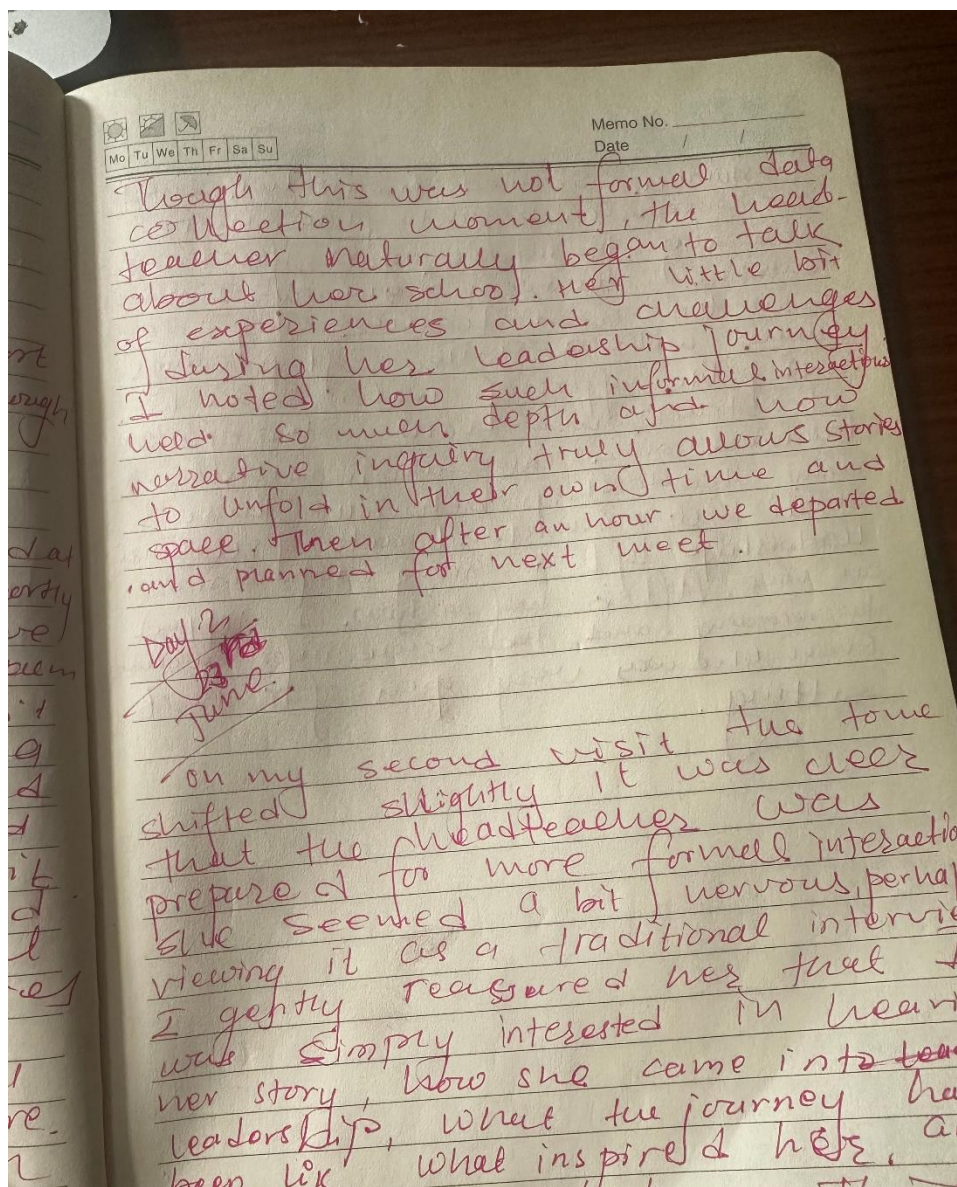 Memo No.
Mo Tu We Th Fr Sa Su
Date / /
Though this was not formal data
collection moment, the head-
teacher naturally began to talk
about her school. Her little bit
of experiences and challenges
during her leadership journey
I noted how such informal interactions
held so much depth and how
narrative inquiry truly allows stories
to unfold in their own time and
space. Then after an hour we departed
and planned for next meet.
Day 2
23rd
June
on my second visit the tone
shifted slightly it was cleer
that the headteacher was
prepared for more formal interactio
she seemed a bit nervous, perha
viewing it as a traditional intervie
I gently reassured her that
was simply interested in heari
her story, how she came into
leadership, what the journey ha
been lik what inspired her, a
rt
ough
dat
ortly
re
seem
g
d
d
it
d
l
es
re.